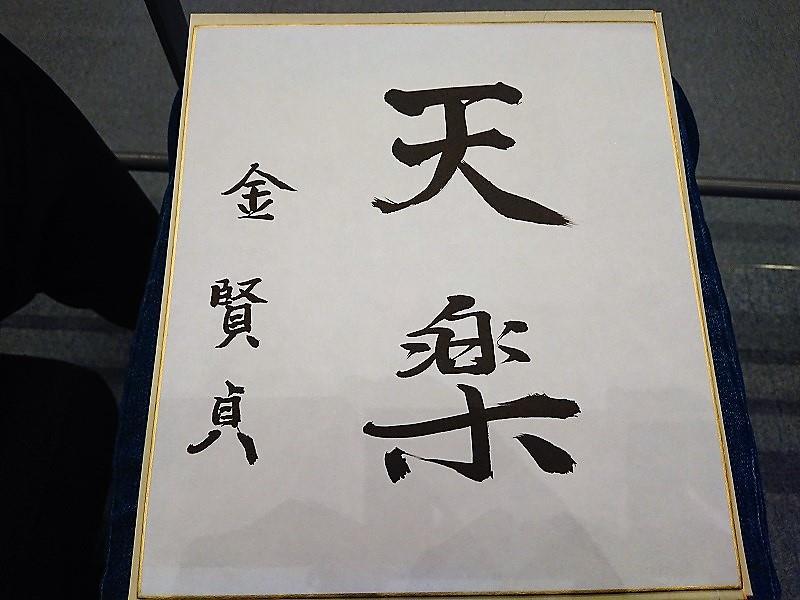 天楽
金賢貞